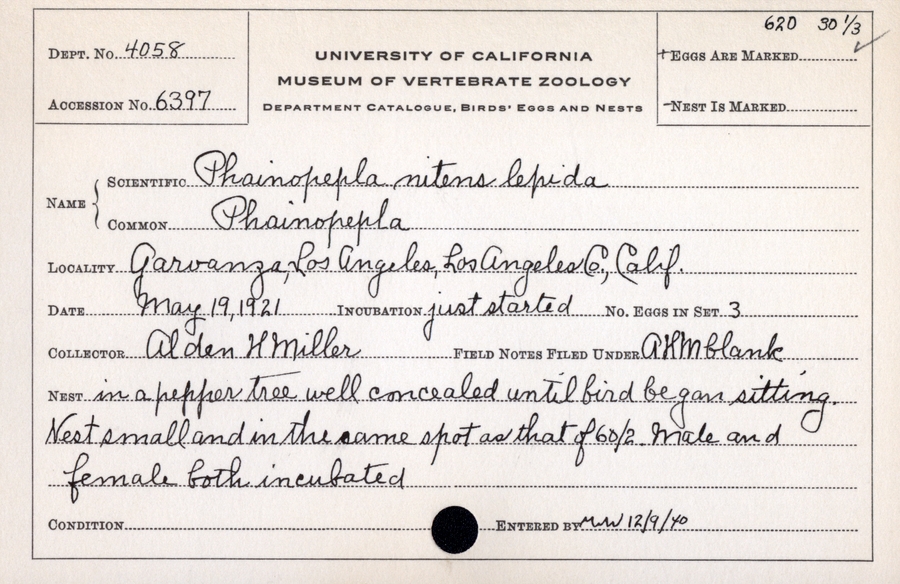 620 30 1/3 ✓
DEPT. NO. 4058
UNIVERSITY OF CALIFORNIA
+ EGGS ARE MARKED
MUSEUM OF VERTEBRATE ZOOLOGY
ACCESSION NO. 6397
DEPARTMENT CATALOGUE, BIRDS' EGGS AND NESTS
- NEST IS MARKED
NAME { SCIENTIFIC Phainopepla nitens lepida
COMMON Phainopepla
LOCALITY Garvanza, Los Angeles, Los Angeles Co., Calif.
DATE May 19, 1921 INCUBATION just started NO. EGGS IN SET 3
COLLECTOR Alden H Miller FIELD NOTES FILED UNDER AHM blank
NEST in a pepper tree well concealed until bird began sitting.
Nest small and in the same spot as that of 60/2. Male and
female both incubated
CONDITION ENTERED BY 12/9/40